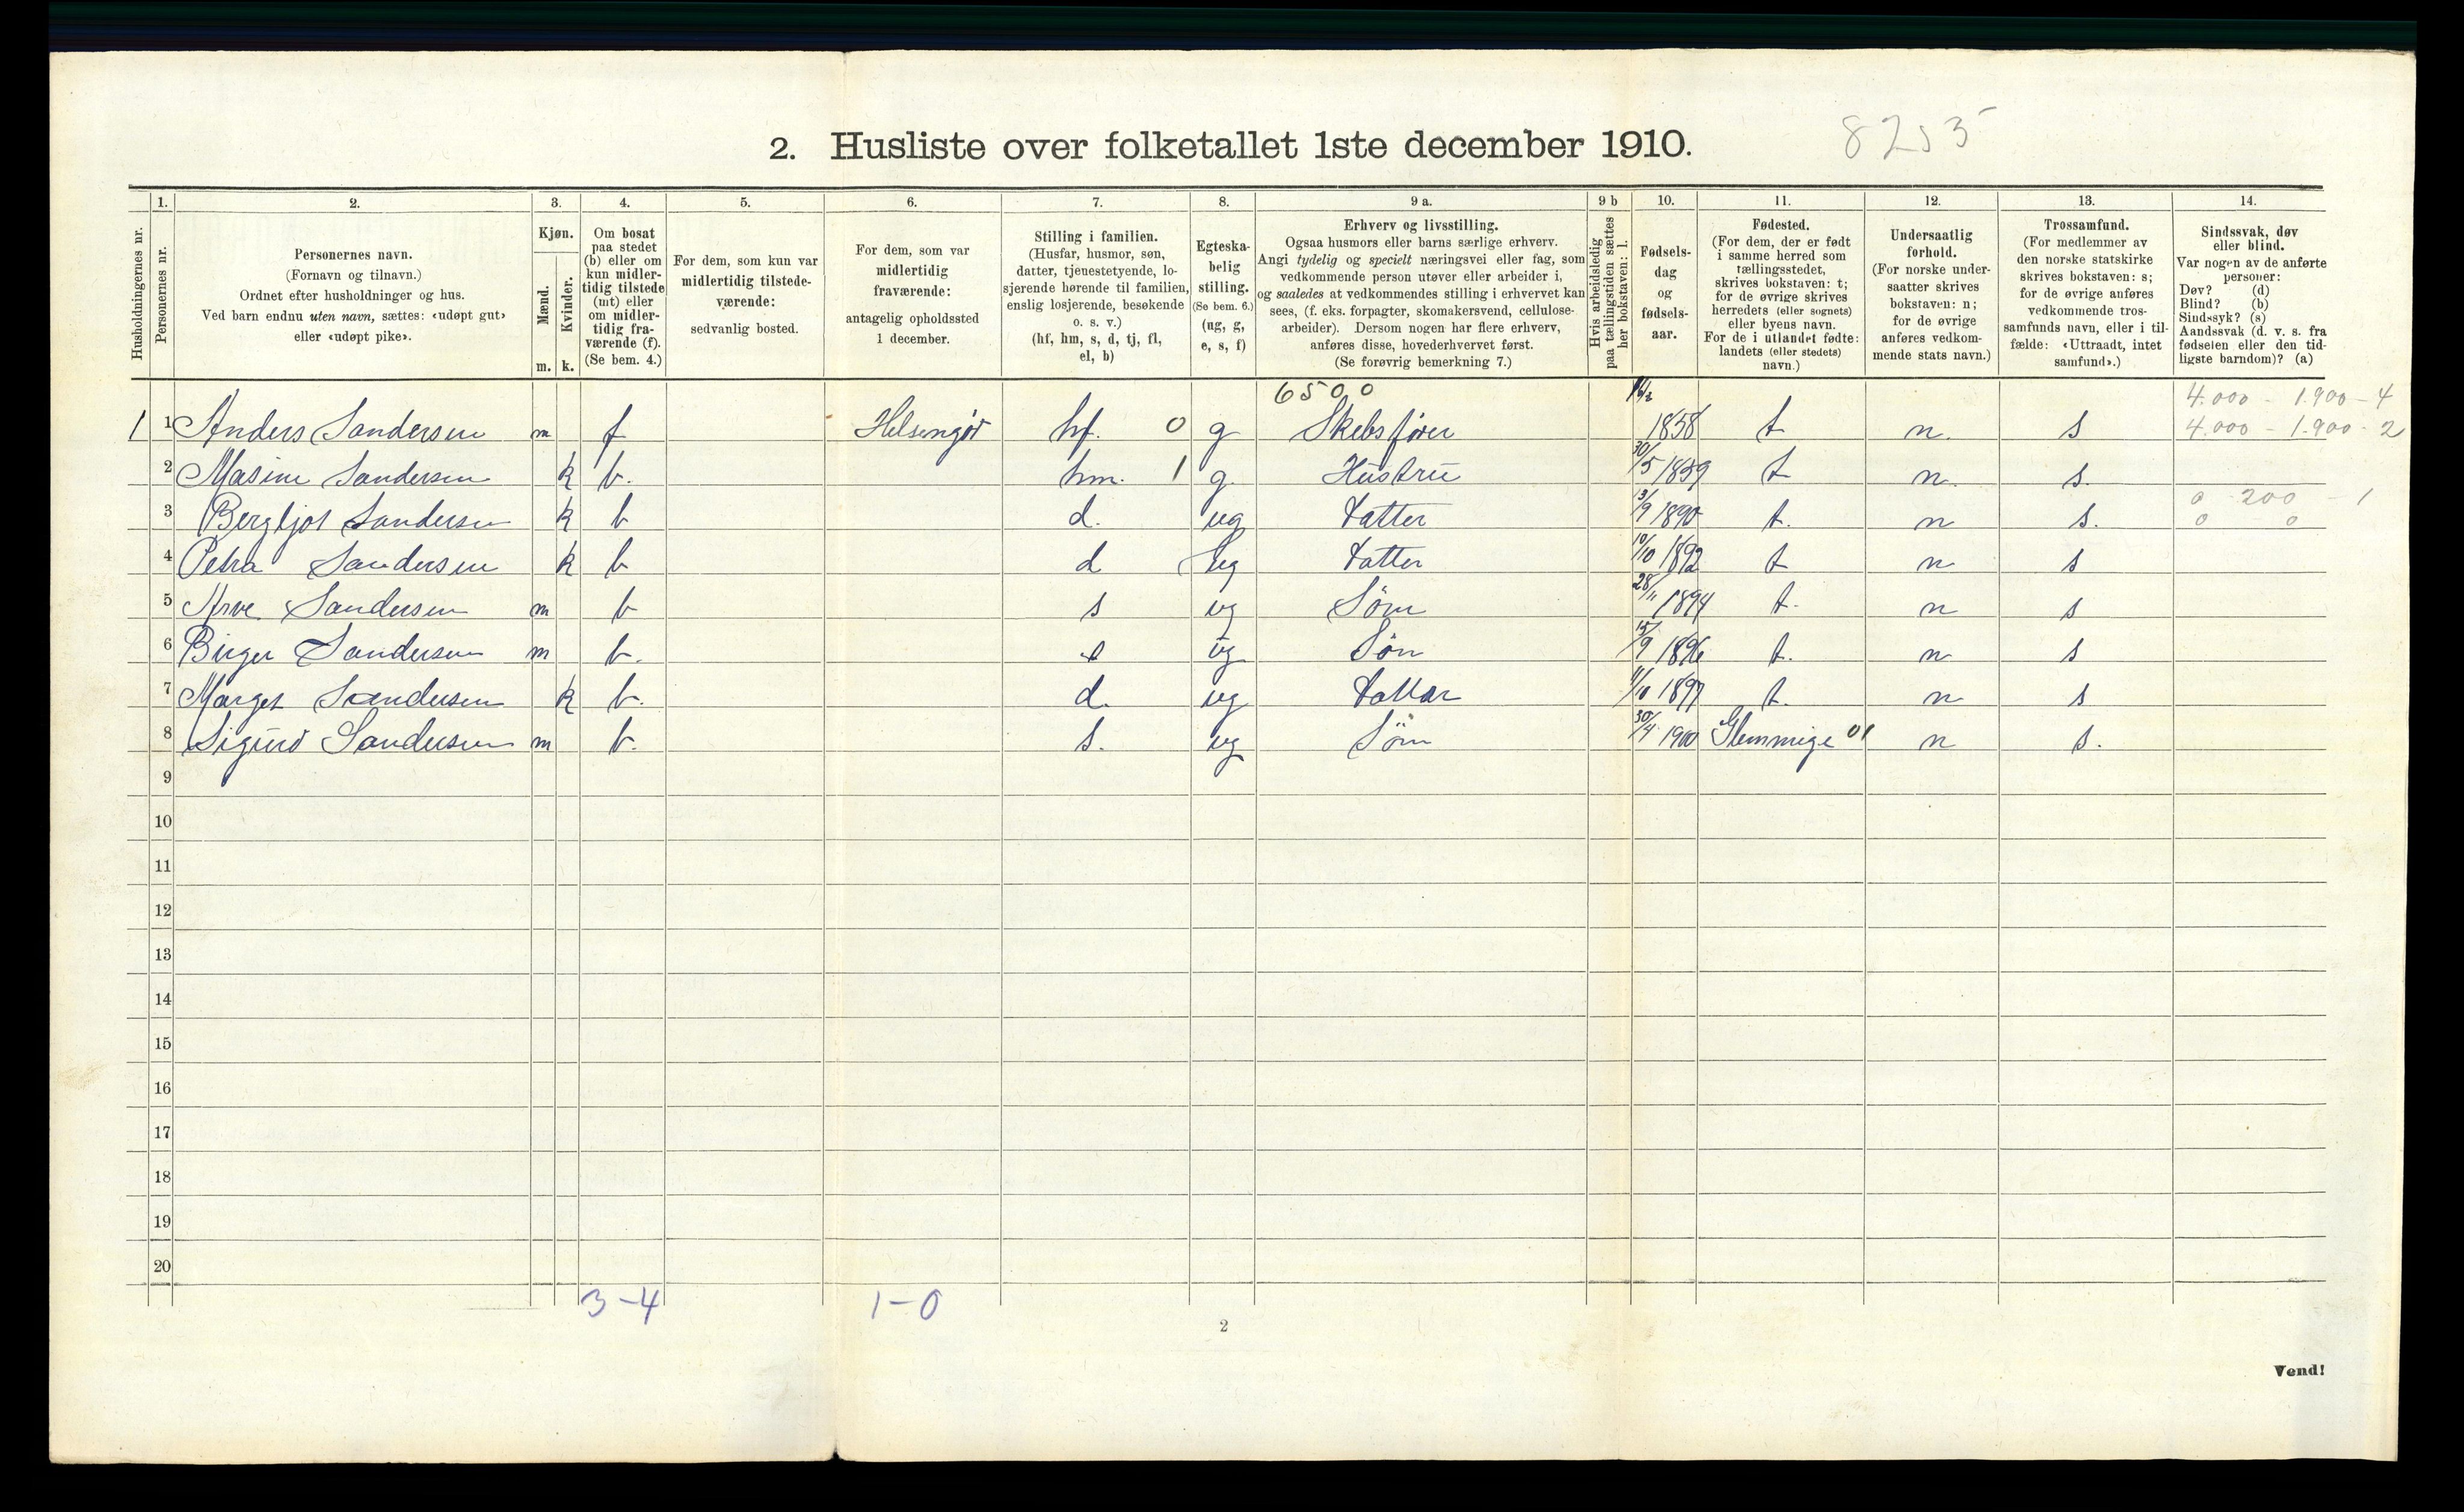 2. Husliste over folketallet 1ste december 1910.
8253
Husholdningernes nr.
1.
Personernes nr.
2.
Personernes navn.
(Fornavn og tilnavn.)
Ordnet efter husholdninger og hus.
Ved barn endnu uten navn, sættes: «udøpt gut»
eller «udøpt pike».
3.
Kjøn.
Mænd.
m.
Kvinder.
k.
4.
Om bosat
paa stedet
(b) eller om
kun midler-
tidig tilstede
(mt) eller
om midler-
tidig fra-
værende (f).
(Se bem. 4.)
5.
For dem, som kun var
midlertidig tilstede-
værende:
sedvanlig bosted.
6.
For dem, som var
midlertidig
fraværende:
antagelig opholdssted
1 december.
7.
Stilling i familien.
(Husfar, husmor, søn,
datter, tjenestetyende, lo-
sjerende hørende til familien,
enslig losjerende, besøkende
o. s. v.)
(hf, hm, s, d, tj, fl,
el, b)
8.
Egteska-
belig
stilling.
(Se bem. 6.)
(ug, g,
e, s, f)
9 a.
Erhverv og livsstilling.
Ogsaa husmors eller barns særlige erhverv.
Angi tydelig og specielt næringsvei eller fag, som
vedkommende person utøver eller arbeider i,
og saaledes at vedkommendes stilling i erhvervet kan
sees, (f. eks. forpagter, skomakersvend, cellulose-
arbeider). Dersom nogen har flere erhverv,
anføres disse, hovederhvervet først.
(Se forøvrig bemerkning 7.)
9 b
Hvis arbeidsledig
paa tællingstiden sættes
her bokstaven: l.
10.
Fødsels-
dag
og
fødsels-
aar.
11.
Fødested.
(For dem, der er født
i samme herred som
tællingsstedet,
skrives bokstaven: t;
for de øvrige skrives
herredets (eller sognets)
eller byens navn.
For de i utlandet fødte:
landets (eller stedets)
navn.)
12.
Undersaatlig
forhold.
(For norske under-
saatter skrives
bokstaven: n;
for de øvrige
anføres vedkom-
mende stats navn.)
13.
Trossamfund.
(For medlemmer av
den norske statskirke
skrives bokstaven: s;
for de øvrige anføres
vedkommende tros-
samfunds navn, eller i til-
fælde: «Uttraadt, intet
samfund».)
14.
Sindssvak, døv
eller blind.
Var nogen av de anførte
personer:
Døv? (d)
Blind? (b)
Sindssyk? (s)
Aandssvak (d. v. s. fra
fødselen eller den tid-
ligste barndom)? (a)
6500 4.000 - 1.900 - 4
1 1 Anders Sandersen m f Helsingør hf. 0 g Skebsfører 1858 t n. s 4.000 - 1.900 - 2
2 Masine Sandersen k b. hm. 1 g. Hustru 30/5 1859 t n. s.
0 200 - 1
3 Bergljot Sandersen k b d. ug Datter 13/9 1890 t. n s. 0 0
4 Petra Sandersen k b d ug Datter 10/10 1892 t n s
5 Arve Sandersen m b s ug Søn 28/11 1894 t. n s
6 Birger Sandersen m b. s ug Søn 15/9 1896 t. n s
7 Marget Sandersen k b. d. ug Datter 11/10 1897 t. n s
8 Sigurd Sandersen m b. s. ug Søn 30/4 1900 Glemmige 01 n s.
9
10
11
12
13
14
15
16
17
18
19
20
3-4 1-0
2
Vend!